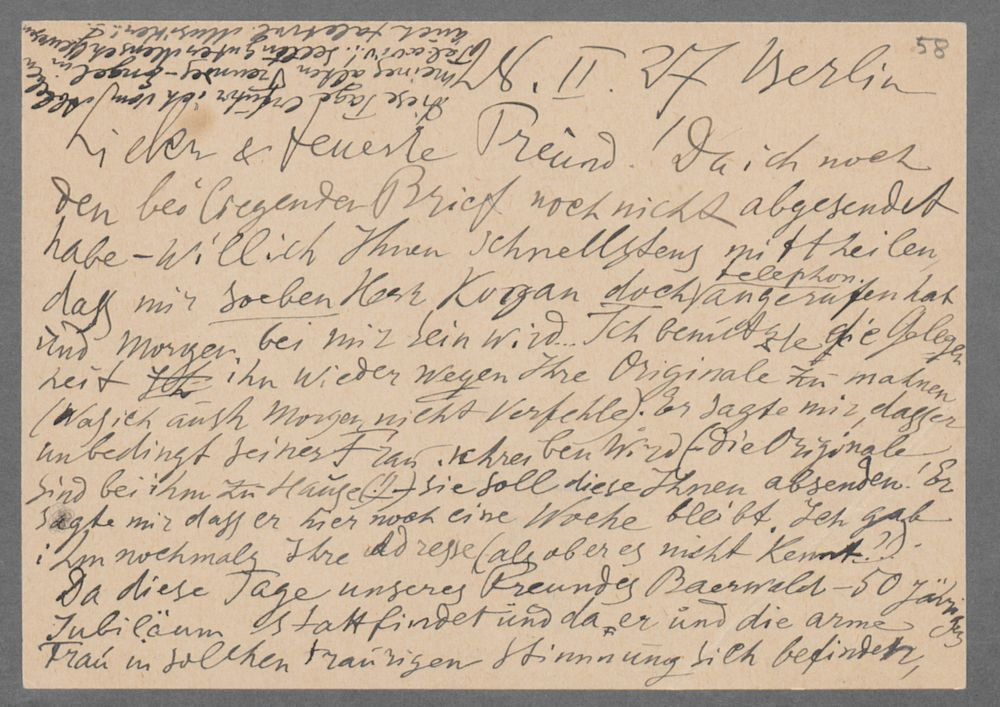 58
28. II. 27 Berlin
Lieber & teuerste Freund! Da ich noch
den beiliegenden Brief noch nicht abgesendet
habe – will ich Ihnen schnellstens mittheilen,
dass mir soeben Herr Korgan doch telephon. angerufen hat
und Morgen bei mir sein wird... Ich benützte die Gelegen
heit ihn wieder wegen Ihre Originale zu mahnen
(Was ich auch Morgen nicht verfehle). Er sagte mir, dass er
unbedingt seiner Frau schreiben wird (– die Originale
sind bei ihm zu Hause (!) –) sie soll diese Ihnen absenden! Er
sagte mir dass er hier noch eine Woche bleibt. Ich gab
ihm nochmals Ihre Adresse (als ob er es nicht kennt!?).
Da diese Tage unseres Freundes Baerwald – 50 jähriges
Jubiläum stattfindet und da er und die arme
Frau in solchen traurigen Stimmung sich befinden,
diese Tage erfuhr ich vom
meines alten Freundes – Engel in
Tel-Aviv! Selten guter Mensch gewesen
auch talentvol. Musiker!